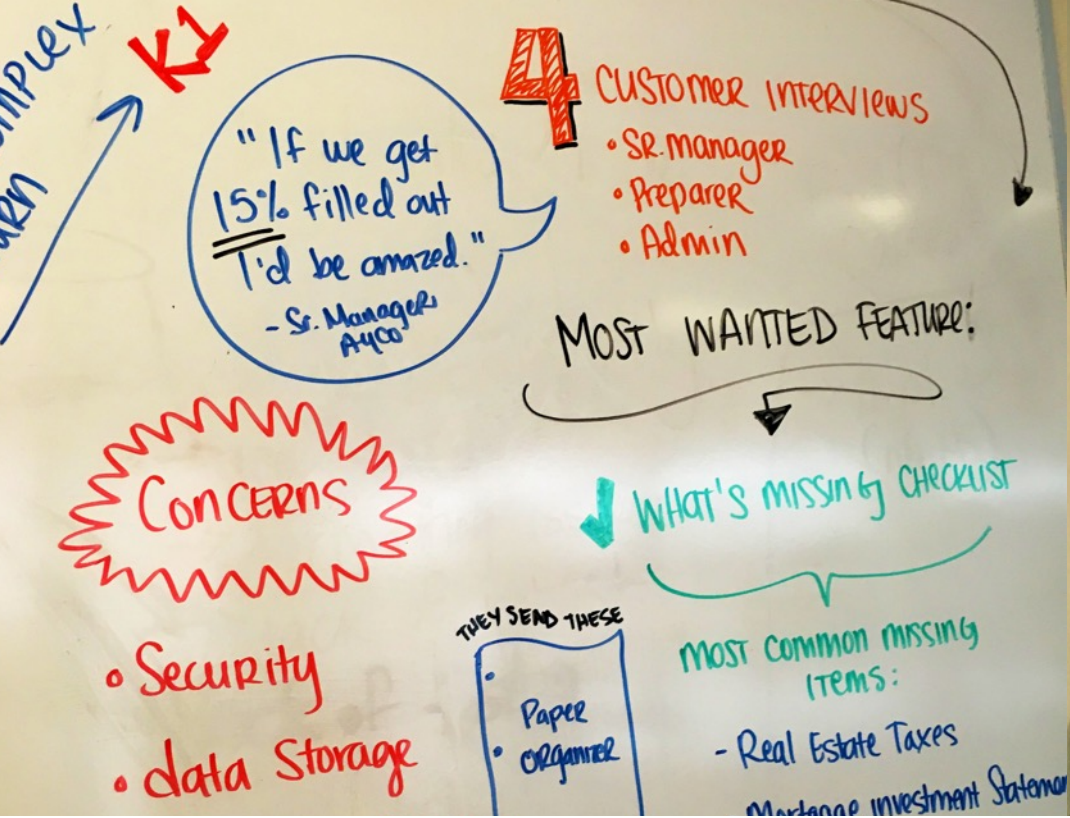 K1
"If we get
15% filled out
I'd be amazed."
- Sr. Manager
Ayco
4 CUSTOMER INTERVIEWS
• SR. manager
• Preparer
• Admin
MOST WANTED FEATURE:
WHAT'S MISSING CHECKLIST
MOST COMMON MISSING
ITEMS:
- Real Estate Taxes
Mortgage investment
CONCERNS
• Security
• data Storage
THEY SEND THESE
Paper
ORGANIZER